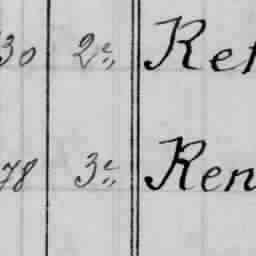 30 2e,, Ren
78 3e,, Ren